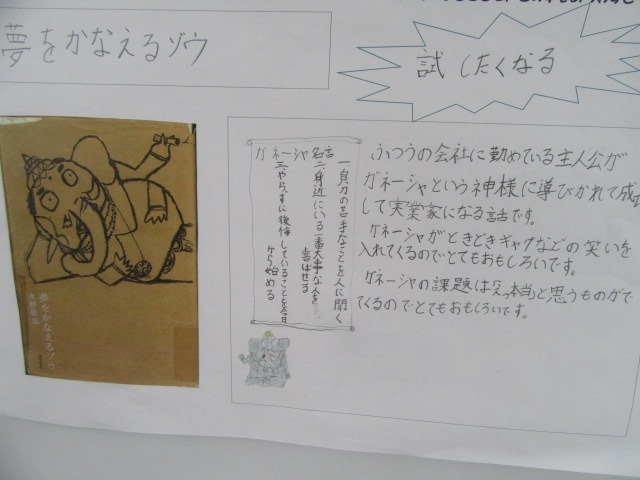 夢をかなえるゾウ
試したくなる
夢をかなえるゾウ
水野敬也
ガネーシャ名言
一、自分の苦手なことを人に聞く
二、身近にいる一番大事な人を……
喜ばせる
三、やらずに後悔していることを今日
から始める
ふつうの会社に勤めている主人公が
ガネーシャという神様に導びかれて成
して実業家になる話です。
ガネーシャがときどきギャグなどの笑いを
入れてくるのでとてもおもしろいです。
ガネーシャの課題は「え、本当」と思うものがで
てくるのでとてもおもしろいです。